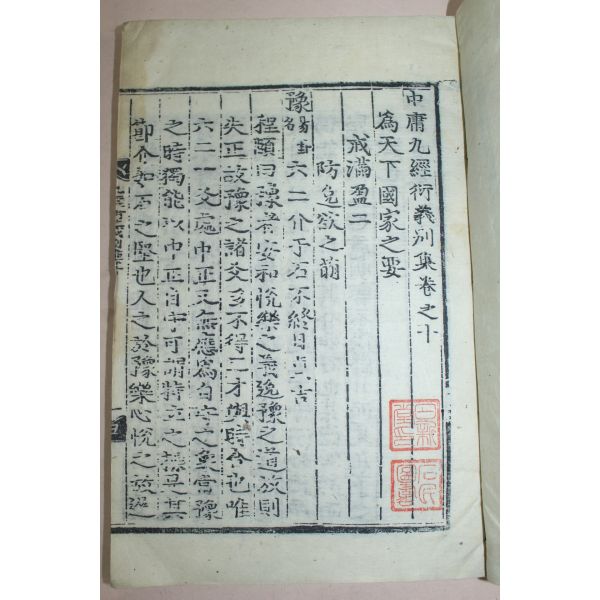 中庸九經衍義別集卷之十
為天下國家之要
戒滿盈二
防逸欲之萌
豫易卦名六二介于石不終日貞吉
程頤曰豫者安和悅樂之義逸豫之道放則
失正故豫之諸爻多不得正才與時合也唯
六二一爻處中正又無應為自守之象當豫
之時獨能以中正自守可謂特立之操是其
節介如石之堅也人之於豫樂心悅之故遲